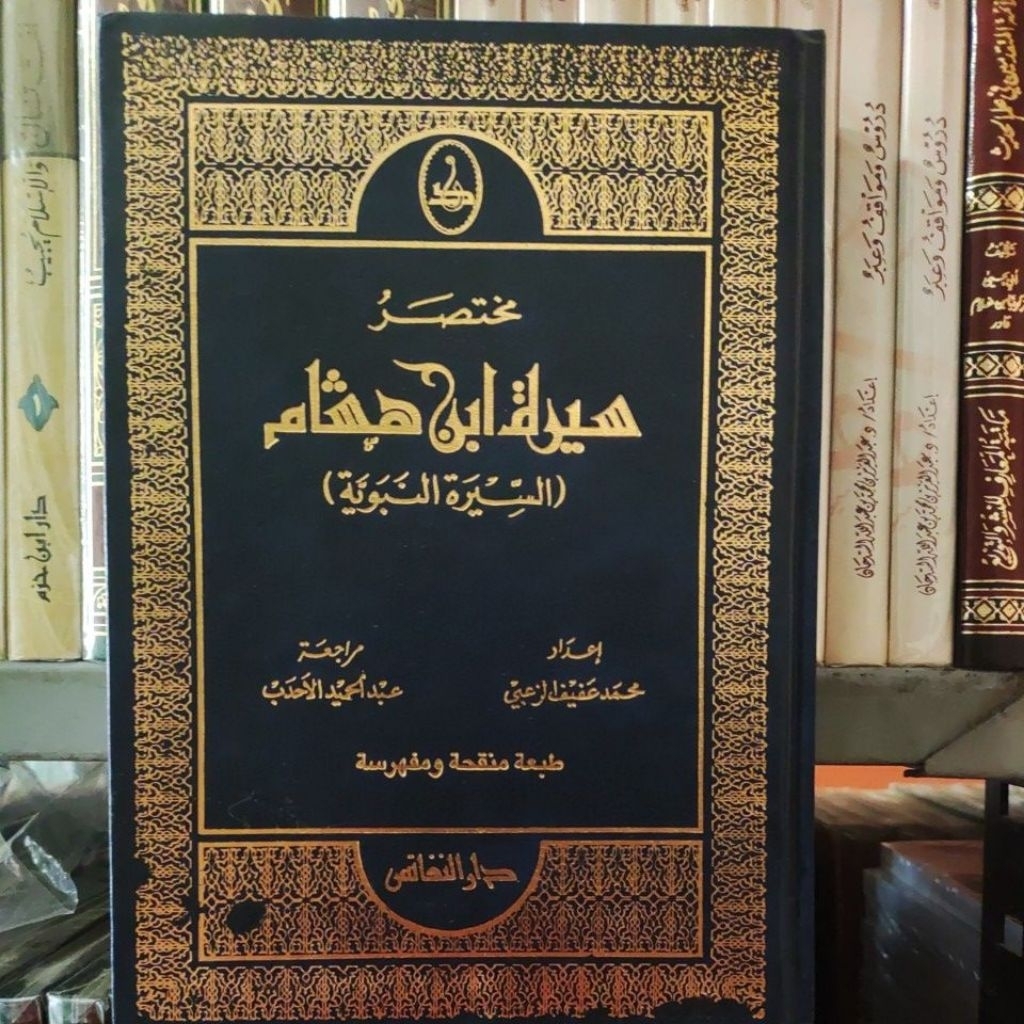 مختصَرُ
سيرة ابن هشام
(السِّيْرَة النَبَويَّة)
إعدَاد
محمَد عَفيف الزعبي
مراجعَة
عبْد الحميْد الأحدَبْ
طبعة منقحة ومفهرسة
دار النفائس
والإسلام يجيب
دار ابن حزم
دُرُوسٌ وَمَوَاقِفُ وَعِبَرٌ
دُرُوسٌ وَمَوَاقِفُ وَعِبَرٌ
مكتبة المعارف للنشر والتوزيع